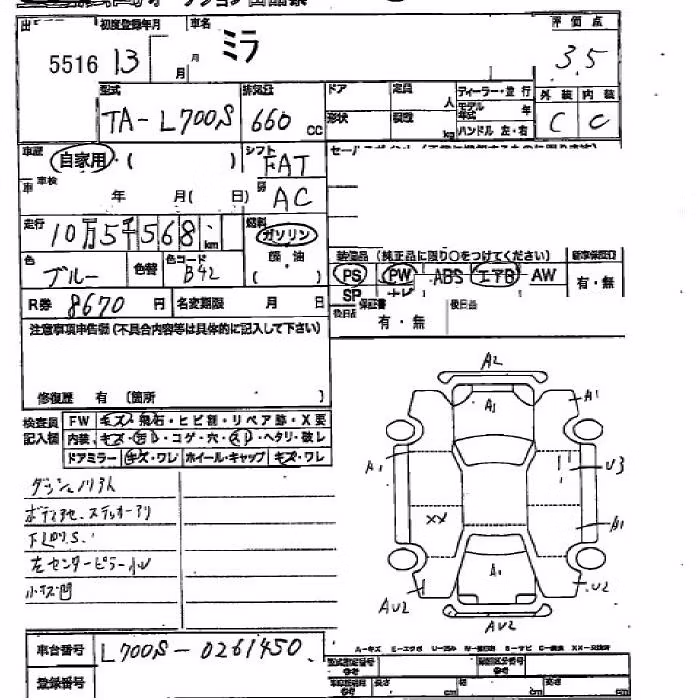 初度登録年月 車名
5516 13 月 月 ミラ
評価点
3.5
型式 排気量 ドア 定員 人 ディーラー・並行
TA-L700S 660 cc 形状 積載 kg モデル年式 年
ハンドル 左・右
外装 内装
C C
車歴 自家用・( ) シフト FAT
車検 年 月( 日) AC
走行 10万5千568 km 燃料 ガソリン
軽・油
( )
色 ブルー 色替 色コード B42
R券 8670 円 名変期限 月 日
装備品 (純正品に限り〇をつけてください) 新車保証書
PS PW ABS エアB AW 有・無
SP
後日品 保証書 有・無 後日品
注意事項申告欄 (不具合内容等は具体的に記入して下さい)
修復歴 有 〔箇所 〕
検査員記入欄
FW キズ・飛石・ヒビ割・リペア跡・X要
内装 キズ・汚れ・コゲ・穴・スレ・ヘタリ・破レ
ドアミラー キズ・ワレ ホイール・キャップ キズ・ワレ
ボディ他、ステッカーアリ
下回りS.
左センターピラー小U
小キズ凹
A2
A1 A1
A1 U3
XX A1
A1
AU2 U2
AU2
車台番号 L700S-0261450
登録番号
A-キズ E-エクボ U-凹み
長さ cm 幅 cm 高さ cm